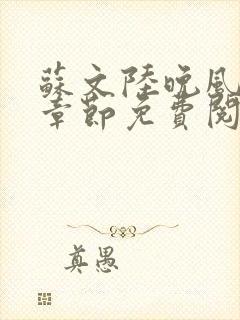 蘇文陸晚風
章節免費閱
真愚